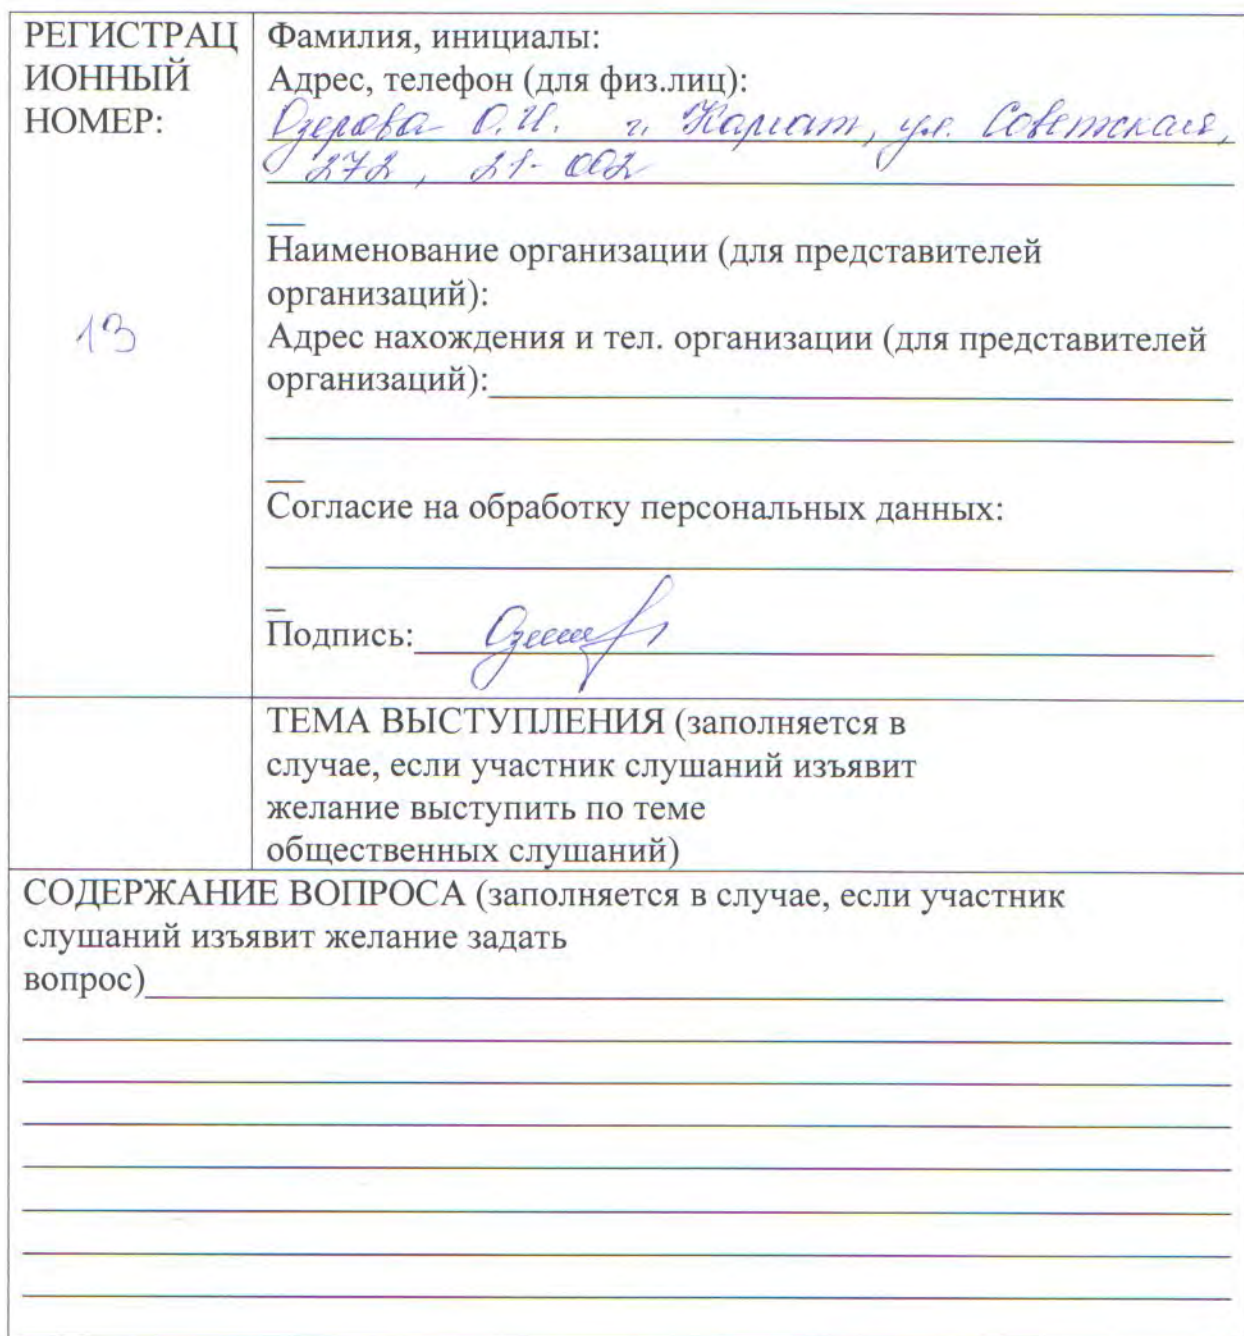 РЕГИСТРАЦ
ИОННЫЙ
НОМЕР:
13
Фамилия, инициалы:
Адрес, телефон (для физ.лиц):
Озерова О.И. г. Каргат, ул. Советская,
272, 21-002
Наименование организации (для представителей
организаций):
Адрес нахождения и тел. организации (для представителей
организаций):
Согласие на обработку персональных данных:
Подпись:
ТЕМА ВЫСТУПЛЕНИЯ (заполняется в
случае, если участник слушаний изъявит
желание выступить по теме
общественных слушаний)
СОДЕРЖАНИЕ ВОПРОСА (заполняется в случае, если участник
слушаний изъявит желание задать
вопрос)